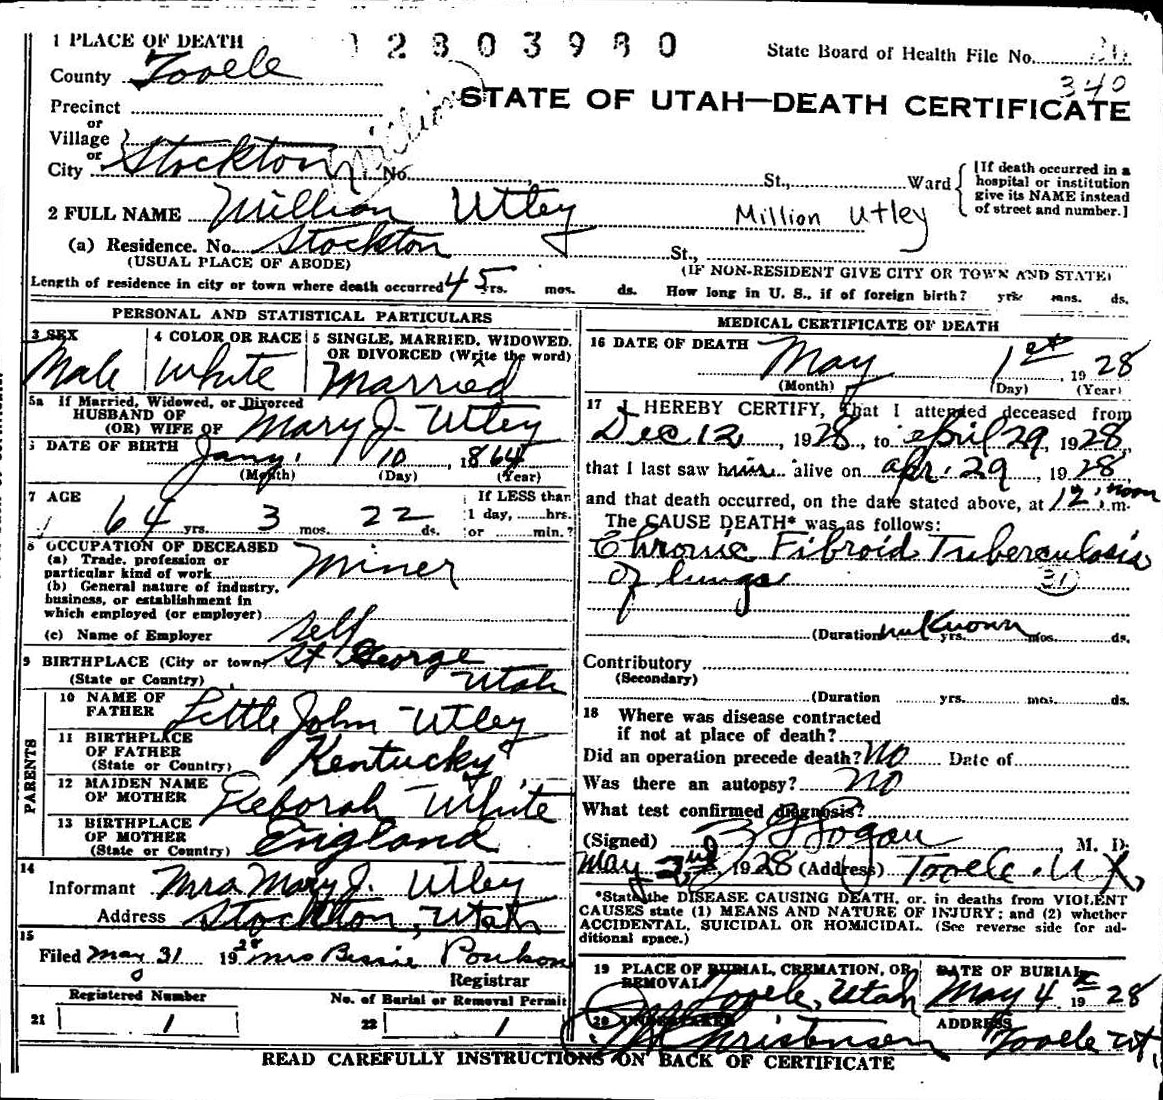 1 PLACE OF DEATH 12803980 State Board of Health File No. 26
County Tooele 340
STATE OF UTAH—DEATH CERTIFICATE
Precinct
or
Village
or
City Stockton million No. St., Ward
[If death occurred in a hospital or institution give its NAME instead of street and number.]
2 FULL NAME Million Utley Million Utley
(a) Residence. No. Stockton St.,
(USUAL PLACE OF ABODE) (IF NON-RESIDENT GIVE CITY OR TOWN AND STATE)
Length of residence in city or town where death occurred 45 yrs. mos. ds. How long in U. S., if of foreign birth? yrs. mos. ds.
PERSONAL AND STATISTICAL PARTICULARS
3 SEX 4 COLOR OR RACE 5 SINGLE, MARRIED, WIDOWED, OR DIVORCED (Write the word)
Male White Married
5a If Married, Widowed, or Divorced
HUSBAND OF
(OR) WIFE OF Mary J. Utley
6 DATE OF BIRTH Jany. 10 1864
(Month) (Day) (Year)
7 AGE If LESS than
64 yrs. 3 mos. 22 ds. 1 day, hrs.
or min.?
8 OCCUPATION OF DECEASED
(a) Trade, profession or
particular kind of work Miner
(b) General nature of industry,
business, or establishment in
which employed (or employer)
(c) Name of Employer self
9 BIRTHPLACE (City or town) St George
(State or Country) Utah
PARENTS
10 NAME OF
FATHER Little John Utley
11 BIRTHPLACE
OF FATHER
(State or Country) Kentucky
12 MAIDEN NAME
OF MOTHER Deborah White
13 BIRTHPLACE
OF MOTHER
(State or Country) England
14
Informant Mrs Mary J. Utley
Address Stockton, Utah
15
Filed May 31 1928 Mrs Bessie Registrar
Registered Number No. of Burial or Removal Permit
21 1 22 1
MEDICAL CERTIFICATE OF DEATH
16 DATE OF DEATH
May 1st, 1928
(Month) (Day) (Year)
17 I HEREBY CERTIFY, That I attended deceased from
Dec 12, 1928, to April 29, 1928,
that I last saw him alive on Apr. 29 1928
and that death occurred, on the date stated above, at 12 noon m.
The CAUSE DEATH* was as follows:
Chronic Fibroid Tuberculosis
of lungs
31
(Duration unknown yrs. mos. ds.
Contributory
(Secondary)
(Duration yrs. mos. ds.
18 Where was disease contracted
if not at place of death?
Did an operation precede death? No Date of
Was there an autopsy? No
What test confirmed diagnosis?
(Signed) M. D.
May 2nd 1928 (Address) Tooele. Ut,
*State the DISEASE CAUSING DEATH, or, in deaths from VIOLENT
CAUSES state (1) MEANS AND NATURE OF INJURY; and (2) whether
ACCIDENTAL, SUICIDAL OR HOMICIDAL. (See reverse side for ad-
ditional space.)
19 PLACE OF BURIAL, CREMATION, OR REMOVAL DATE OF BURIAL
Tooele, Utah May 4th 1928
20 UNDERTAKER ADDRESS
Christensen Tooele Ut,
READ CAREFULLY INSTRUCTIONS ON BACK OF CERTIFICATE